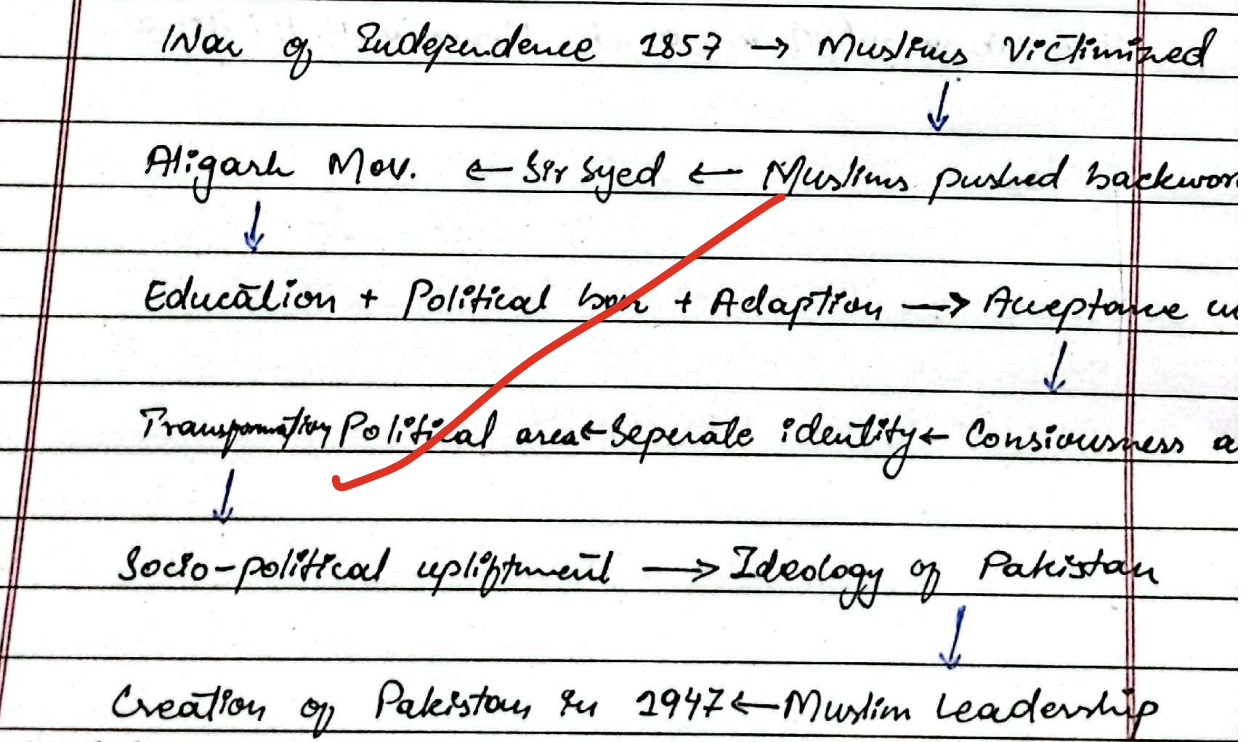 War of Independence 1857 → Muslims Victimized
↓
Aligarh Mov. ← Sir Syed ← Muslims pushed backwor
↓
Education + Political ban + Adaption → Acceptance
↓
Transformation Political area ← Seperate identity ← Consiousness a
↓
Socio-political upliftment → Ideology of Pakistan
↓
Creation of Pakistan in 1947 ← Muslim Leadership